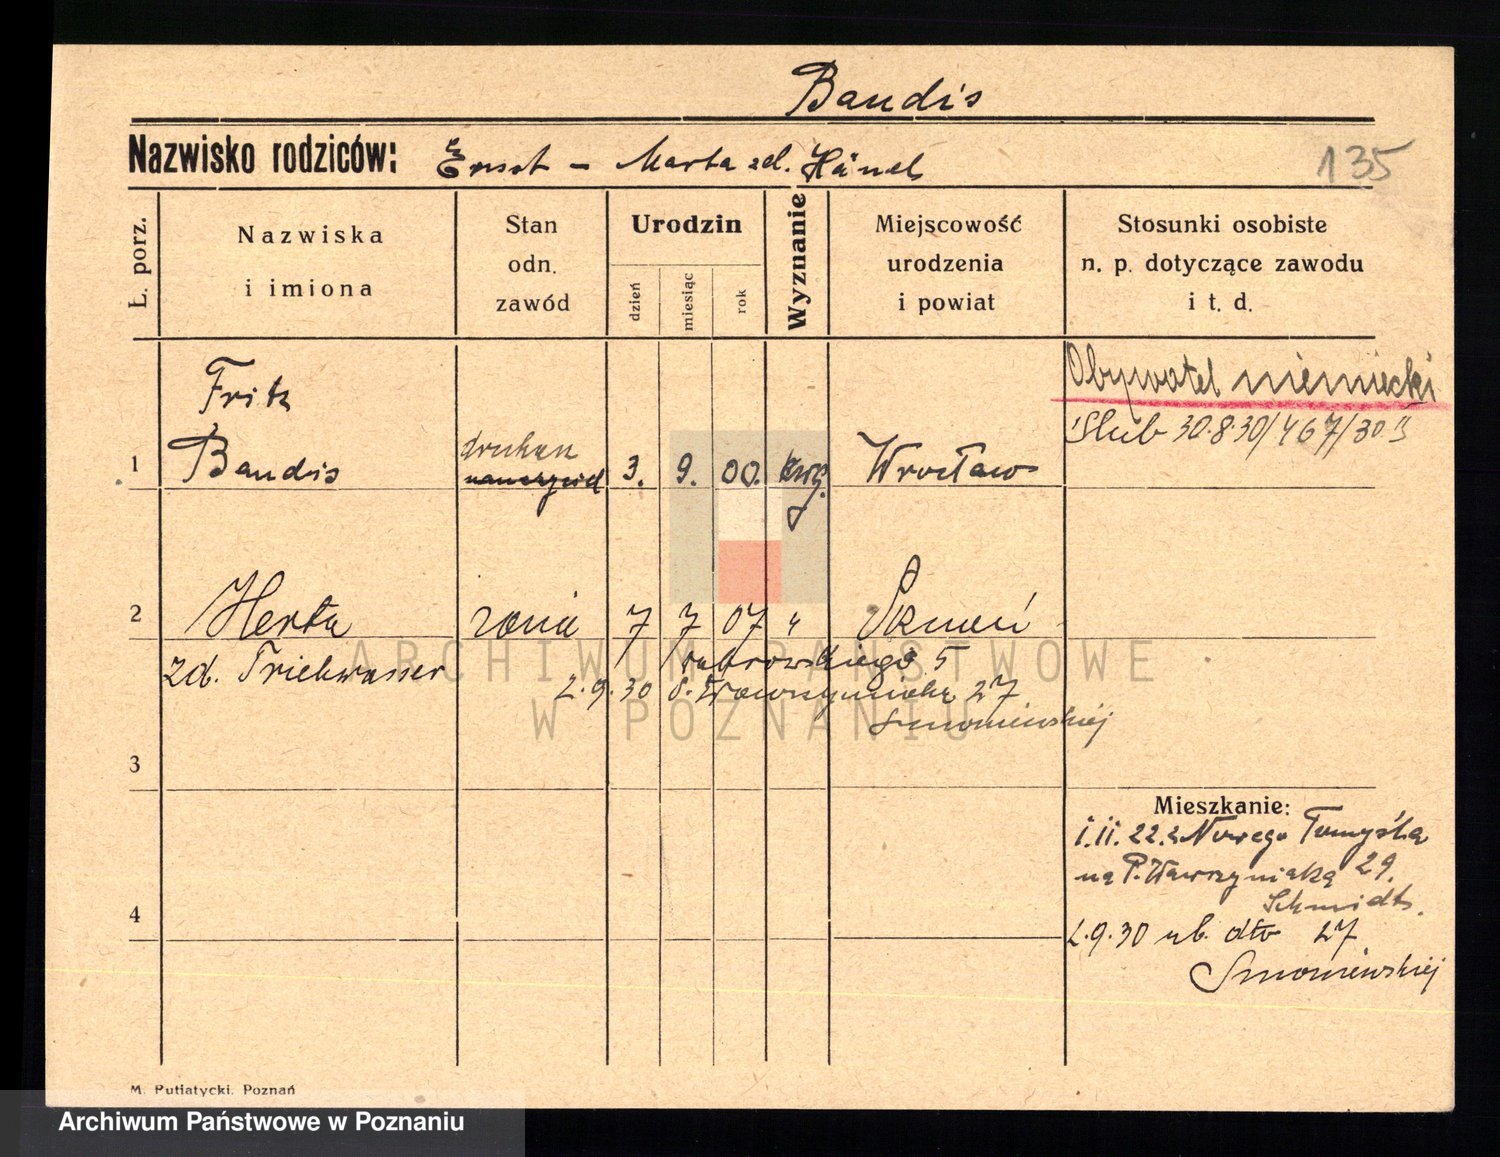 Baudis
Nazwisko rodziców: Ernst – Marta zd. Hänel
135
Ł. porz.
Nazwiska
i imiona
Stan
odn.
zawód
Urodzin
dzień
miesiąc
rok
Wyznanie
Miejscowość
urodzenia
i powiat
Stosunki osobiste
n. p. dotyczące zawodu
i t. d.
Obywatel niemiecki
Ślub 30.8.30/467/30
Fritz
1 Baudis 3. 9. 00. Wrocław
2 Herta żona 7 7 07 " Poznań
zd. Dąbrowskiego 5
2.9.30 P. Wawrzyniaka 27
3
Mieszkanie:
1.11.22. z Nowego Tomyśla
na P. Wawrzyniaka 29.
Schmidt.
4
2.9.30 ub. dto 27
M. Putiatycki. Poznań
ARCHIWUM PAŃSTWOWE
W POZNANIU
Archiwum Państwowe w Poznaniu